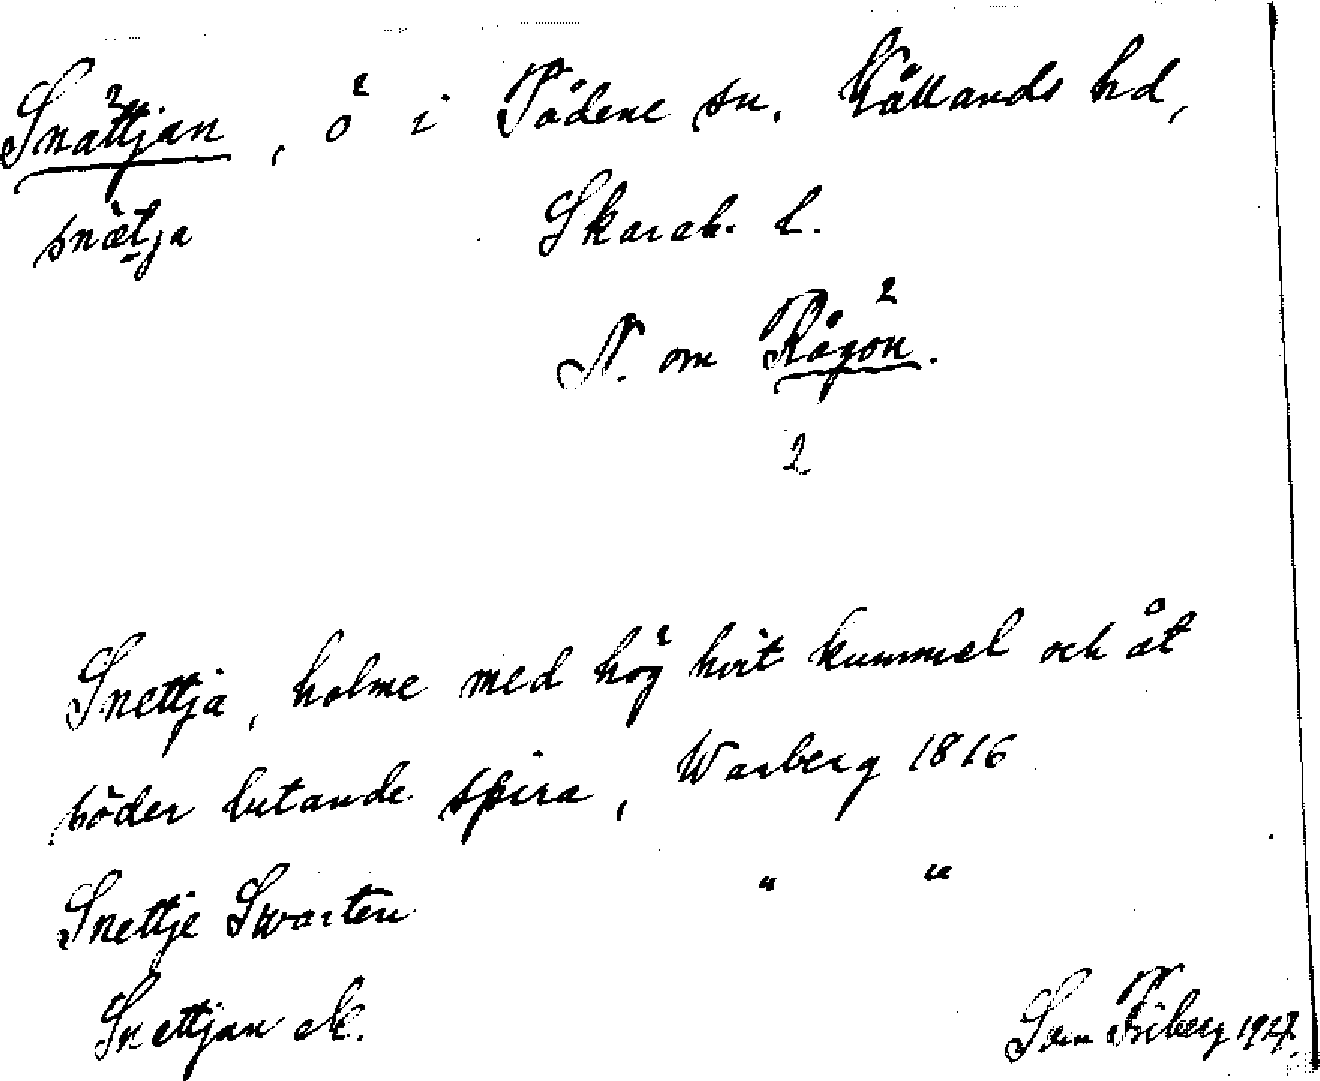 Snättjan, ö i Fådene sn. Kållands hd,
snätja Skarab. l.
N. om Rågön.
2
Snettja, holme med hög hvit kummel och åt
söder lutande spira, Warberg 1816
Snettje Swarten " "
Snettjan ek.
Sven Friberg 1927.